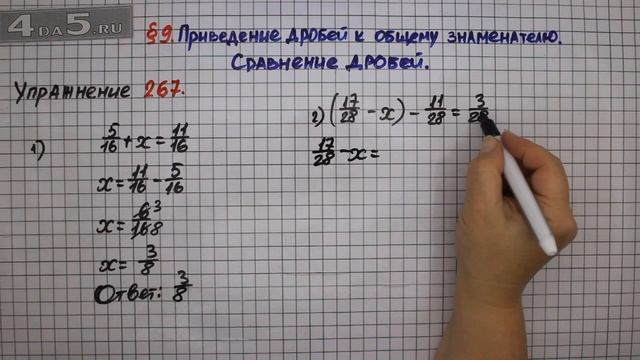 4 DA 5.RU
§ 9. Приведение дробей к общему знаменателю.
Сравнение дробей.
Упражнение 267.
1) 5/16 + x = 11/16
x = 11/16 - 5/16
x = 6/16 3/8
x = 3/8
Ответ: 3/8
2) (17/28 - x) - 11/28 = 3/28
17/28 - x =